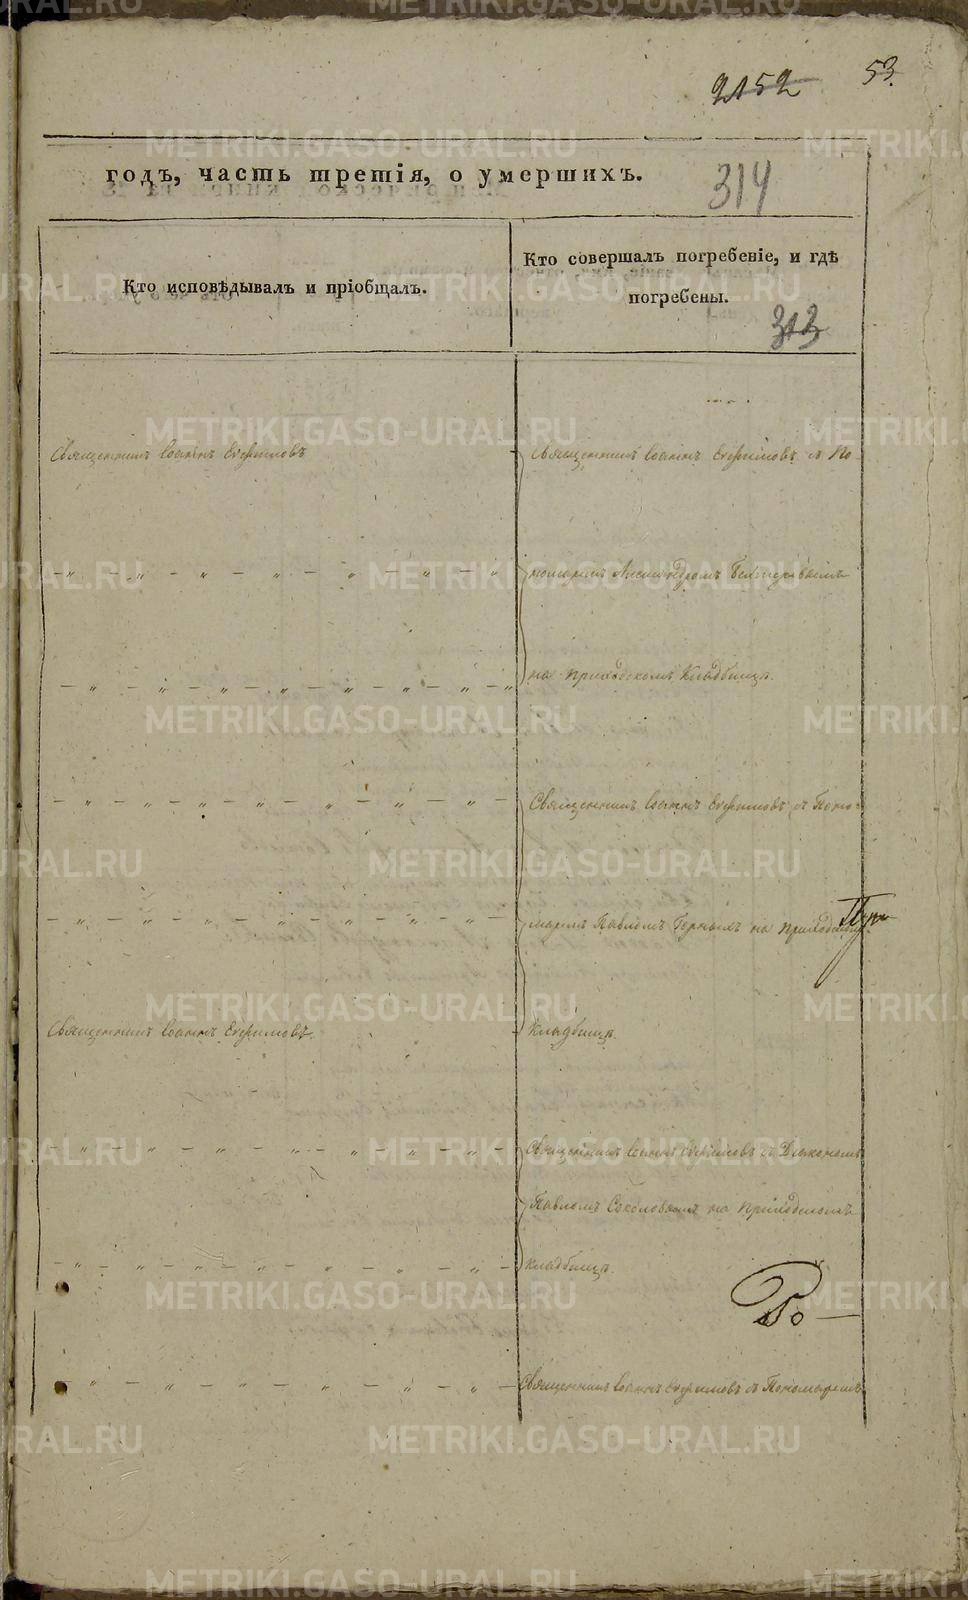 2152 53.
годъ, часть третія, о умершихъ.
314
Кто исповѣдывалъ и пріобщалъ.
Кто совершалъ погребеніе, и гдѣ
погребены.
313
Священникъ Іоаннъ Евфимовъ
Священникъ Іоаннъ Евфимовъ съ По-
номаремъ Александромъ
на приходскомъ кладбищѣ.
Священникъ Іоаннъ Евфимовъ съ Поно-
маремъ Павломъ на приходскомъ
Священникъ Іоаннъ Евфимовъ.
кладбищѣ.
Священникъ Іоаннъ Евфимовъ съ Діакономъ
Павломъ Соколовымъ на приходскомъ
кладбищѣ.
Священникъ Іоаннъ Евфимовъ съ Пономаремъ
METRIKI.GASO-URAL.RU